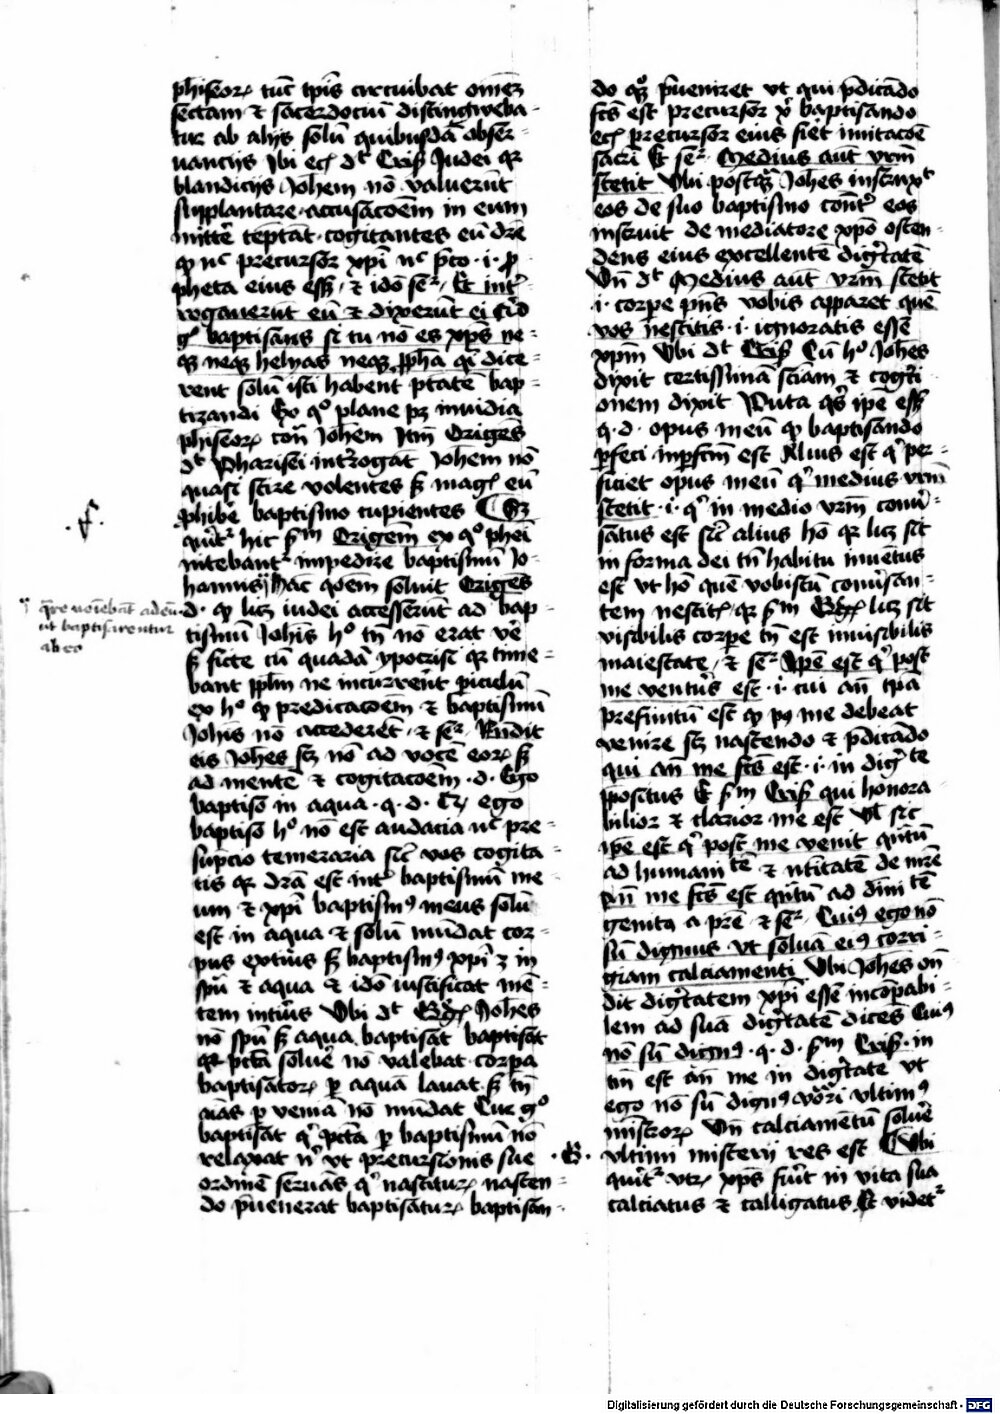 phiseoꝝ tuc̄ tp̄is circuibat om̄ez
sectam ⁊ sacerdotiū distingweba-
tur ab alijs solū quibusdā obser-
uancijs Ibi eciā dt Cris̄ Iudei qr
blandicijs Ioh̄em nō valuerūt
supplantare accusacōem in eum
mitte᷑ tēptāt cogitantes eū dr̄e
ꝙ nc̄ precursor xp̄i nc̄ p̄cō · i · p̄
pheta eius ess̄ / ⁊ idō ser᷑ / Et int᷑
rogauerūt eū ⁊ dixerūt ei Cid
gͦ baptisans si tu nō es xp̄s ne-
qꝫ neqꝫ helyas neqꝫ p̄pha q̄i dice-
rent solū isti habent ptātē bap-
tizandi Ex qͦ plane pꝫ inuidia
phiseoꝝ con̄ Ioh̄em Itm̄ Origēs
dt Pharisei int᷑rogāt Ioh̄em nō
quasi scire volentes sꝫ magꝭ eū
phibe᷑ baptismo cupientes
quit᷑ hic sm̄ Origēem ex qͦ phēi
nitebant᷑ impedire baptismū Io-
hannis hāc qōem soluit Origēs
d · ꝙ licꝫ iudei accesserūt ad bap-
tismū Ioh̄is hͦ tn̄ nō erat ve᷑
sꝫ ficte cū quadā ypocrisi qr time-
bant pplm̄ ne incurrerūt piculū
ex hͦ ꝙ predicacōem ⁊ baptismū
Ioh̄is nō accederēt / ⁊ ser᷑ Rn̄dit
eis Ioh̄es scꝫ nō ad vocē eoꝝ sꝫ
ad mentē ⁊ cogitacōem · d · Ego
baptisō in aqua · q · d · ego
baptisō hͦ nō est audacia nc̄ pre-
supcio temeraria sic̄ vos cogita-
tis qr dr̄ā est int᷑ baptismū me-
um ⁊ xp̄i baptismꝰ meus solū
est in aqua ⁊ solū mūdat cor-
pus exteriꝰ sꝫ baptismꝰ xp̄i ꝫ in
spū ⁊ aqua ⁊ idō iustificat mē-
tem intꝰ Vbi dt Ioh̄es
nō spū sꝫ aqua baptisāt baptisāt
qr pctā solue᷑ nō valebat corpa
baptisatoꝝ p aquā lauat sꝫ tn̄
aīas p veniā nō mūdat Cur gͦ
baptisāt q͛ pctā p baptismū nō
relaxat n͛ vt precursionis sue
ordinē seruās q͛ nascituꝝ nascen-
do p̄uenerat baptisatuꝝ baptisan-
· f ·
q̄re veniebāt ad eū
ut baptisarentur
ab eo
do qꝫ p̄ueniret vt qui p̄dicādo
fcs̄ est precursor xͥ baptisando
eciā precursor eius fiēt imitacōe
sacri Et ser᷑ Medius aut̄ vr̄m
stetit Vbi postqꝫ Ioh̄es instruxt
eos de suo baptismo con̄t᷑ eos
instruit de mediatore xp̄o osten-
dens eius excellentē dig͛tatē
Vn̄ dt Medius aut̄ vr̄m stetit
· i · corpe p̄ns vobis apparet quē
vos nescitis · i · ignoratis esse᷑
xp̄m Vbi dt Cris̄ Cū hͦ Ioh̄es
dixit certissimā sciām ⁊ cogti-
onem dixit Nūta qꝫ ip̄e ess̄
q · d · opus meū ꝙ baptisando
pfeci inpfcm̄ est Alius est q͛ per-
ficiet opus meū q͛ medius vr̄m
stetit · i · q͛ in medio vr̄m conu͛-
satus est sic̄ alius hō qr licꝫ sit
in forma dei tn̄ habitu inuētus
est vt hō quē vobiscū conu͛san-
tem nescitꝭ qr sm̄ licꝫ sit
visibilis corpe tn̄ est inuisibilis
maiestate / ⁊ ser᷑ Ipe est q͛ post
me ventꝰ est · i · cui an̄ tp̄a
prefinitū est ꝙ pꝰ me debeat
venire scꝫ nascendo ⁊ p̄dicādo
qui an̄ me fcs̄ est · i · in dig͛te
ppositus Et sm̄ Cris̄ qui honora-
bilior ⁊ clarior me est Vl sic
ip̄e est q͛ post me venit q̄ntū
ad humanitē ⁊ nt̄itatē de mr̄e
an̄ me fcs̄ est q̄ntū ad diuītē
genita a pr̄e ⁊ ser᷑ Cuiꝰ ego nō
sū dignus vt soluā eiꝰ corri-
giam calciamenti Vbi Ioh̄es on̄
dit dig͛tatem xp̄i esse᷑ incōpabi-
lem ad suā dig͛tatē dicēs Cuiꝰ
nō sū dignꝰ · q · d · sm̄ Cris̄ · in
tm̄ est an̄ me in dig͛tate vt
ego nō sū dignꝰ vōri vltimꝰ
ministroꝝ Vn̄ calciamētū solue᷑
vltimi misterij res est Vbi
quit᷑ vtꝝ xp̄s fuīt in vita sua
calciatus ⁊ calligatus Et videt᷑
Digitalisierung gefördert durch die Deutsche Forschungsgemeinschaft - DFG